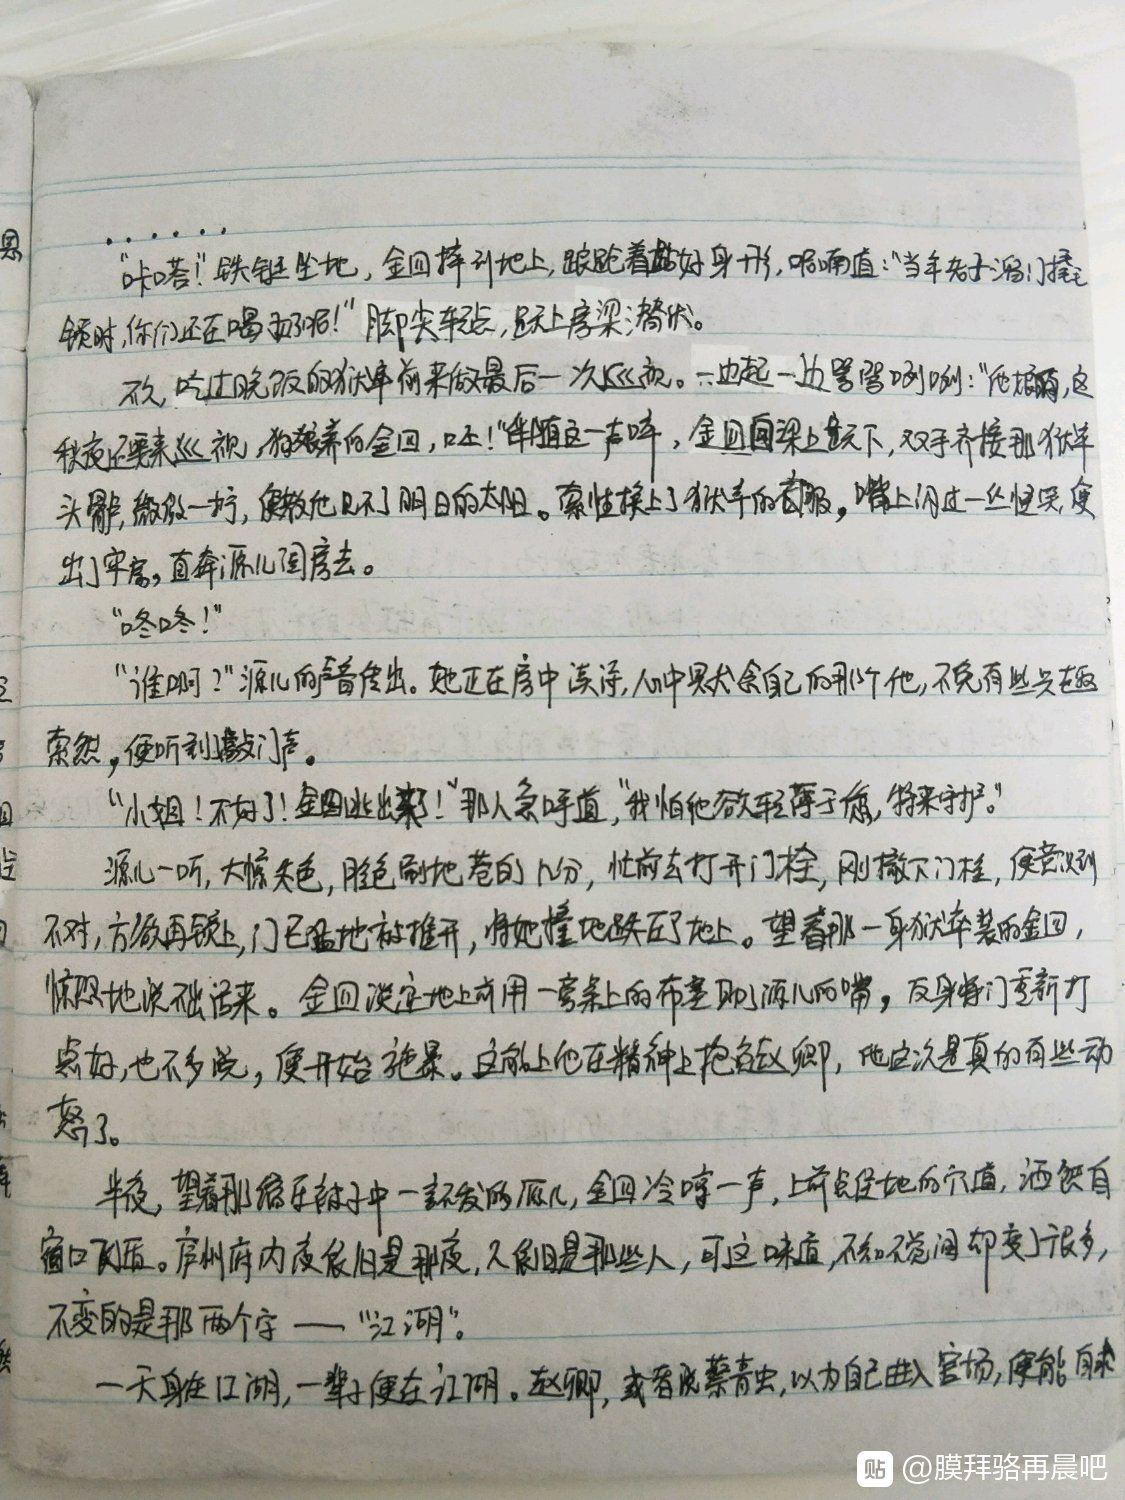 ......
"咔嗒!"铁链坠地,金四摔到地上,踉跄着站好身形,喃喃道:"当年老子溜门撬
锁时,你们还在喝奶呢!"脚尖轻点,跃上房梁潜伏。
不久,吃过晚饭的狱卒前来做最后一次巡视。一边起一边骂骂咧咧:"他娘的,这
秋夜还要来巡视,狗娘养的金四,呸!"伴随这一声啐,金四自梁上跃下,双手齐接那狱卒
头骨,微微一拧,便教他见不了明日的太阳。索性换上了狱卒的衣服,嘴上闪过一丝怪笑,便
出了牢房,直奔源儿闺房去。
"咚咚!"
"谁啊?"源儿的声音传出。她正在房中读诗,心中只伏念自己的那个他,不免有些兴趣
索然,便听到敲门声。
"小姐!不好了!金四逃出来了!"那人急呼道,"我怕他欲轻薄于您,特来守护。"
源儿一听,大惊失色,脸色刷地苍白几分,忙前去打开门栓,刚撤下门栓,便意识到
不对,方欲再锁上,门已猛地被推开,将她撞地跌在了地上。望着那一身狱卒装的金四,
惊恐地说不出话来。金四淡定地上前用一旁桌上的布塞则源儿的嘴,反身将门重新打
点好,也不多说,便开始施暴。这前上他在精神上抱负赵卿,他这次是真的有些动
怒了。
半夜,望着那缩在被子中一言不发的源儿,金四冷哼一声,上前点住她的穴道,洒然自
窗口飞遁。庐州府内夜依旧是那夜,人依旧是那些人,可这味道,不知不觉间却变了很多,
不变的是那两个字——"江湖"。
一天身在江湖,一辈子便在江湖。赵卿,或者说蔡青虫,以为自己进入官场,便能自求
贴 @膜拜骆再晨吧